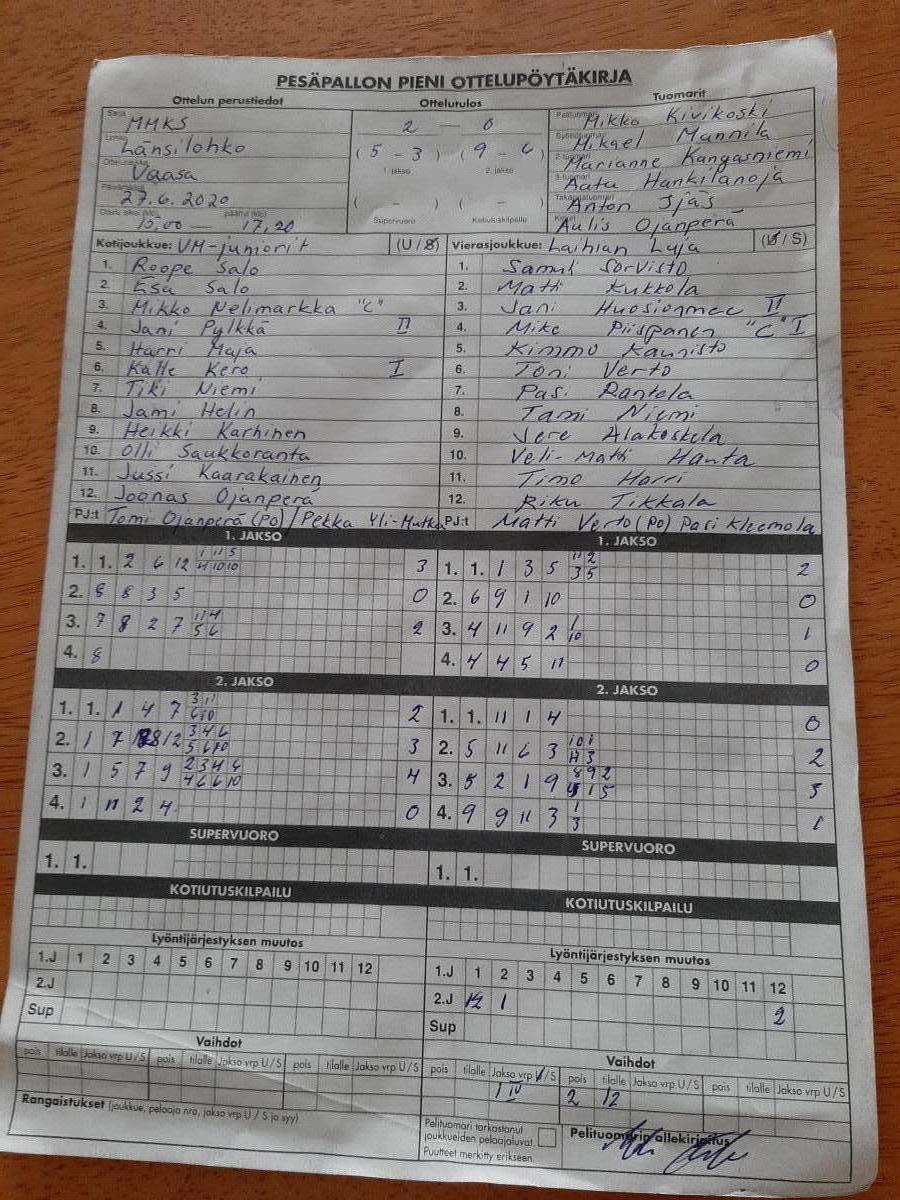 PESÄPALLON PIENI OTTELUPÖYTÄKIRJA
Ottelun perustiedot Ottelutulos Tuomarit
Sarja MMKS
Länsilohko
Vaasa
27.6.2020
15,00 — 17,20
2 — 0
(5 – 3) (9 – 6)
1. jakso 2. jakso
( – ) ( – )
Supervuoro Kotiutuskilpailu
Mikko Kivikoski
Mikael Mannila
Marianne Kangasniemi
Aatu Hankilanoja
Anton Ijäs
Aulis Ojanperä
Kotijoukkue: VM-juniorit (U / S) Vierasjoukkue: Laihian Luja (U / S)
1. Roope Salo 1. Samuli Sorvisto
2. Esa Salo 2. Matti Kukkola
3. Mikko Nelimarkka "C" 3. Jani II
4. Jani Pylkkä II 4. Mika Piispanen "C" I
5. Harri Maja 5. Kimmo Kaunisto
6. Kalle Kero I 6. Toni Verto
7. Tiki Niemi 7. Pasi Rantala
8. Jami Helin 8. Tami Niemi
9. Heikki Karhinen 9. Jere Alakoskela
10. Olli Saukkoranta 10. Veli-Matti Hanta
11. Jussi Kaarakainen 11. Timo Harri
12. Joonas Ojanperä 12. Riku Tikkala
PJ:t Tomi Ojanperä (PO) / Pekka Yli-Hutka PJ:t Matti Verto (PO) Pasi Kleemola
1. JAKSO 1. JAKSO
1. 1. 2 6 12 1 11 5 3 1. 1. 1 3 5 11 2 2
4 10 10 3 5
2. 8 8 3 5 0 2. 6 9 1 10 0
3. 7 8 2 7 11 4 2 3. 4 11 9 2 1 1
5 6 10
4. 8 4. 4 4 5 11 0
2. JAKSO 2. JAKSO
1. 1. 1 4 7 3 11 2 1. 1. 11 1 4 0
6 10
2. 1 7 8 12 3 4 6 3 2. 5 11 6 3 10 1 2
5 6 10 11 3
3. 1 5 7 9 2 3 4 6 4 3. 5 2 1 9 8 9 2 3
4 6 6 10 1 5
4. 1 11 2 4 0 4. 9 9 11 3 1 1
3
SUPERVUORO SUPERVUORO
1. 1. 1. 1.
KOTIUTUSKILPAILU KOTIUTUSKILPAILU
Lyöntijärjestyksen muutos Lyöntijärjestyksen muutos
1.J 1 2 3 4 5 6 7 8 9 10 11 12 1.J 1 2 3 4 5 6 7 8 9 10 11 12
2.J 2.J 12 1 2
Sup Sup
Vaihdot Vaihdot
pois tilalle Jakso vrp U/S pois tilalle Jakso vrp U/S pois tilalle Jakso vrp U/S pois tilalle Jakso vrp U/S pois tilalle Jakso vrp U/S pois tilalle Jakso vrp U/S
1 IV 2 12
Rangaistukset (joukkue, pelaaja nro, jakso vrp U / S ja syy)
Pelituomari tarkastanut
joukkueiden pelaajaluvat
Puutteet merkitty erikseen
Pelituomarin allekirjoitus